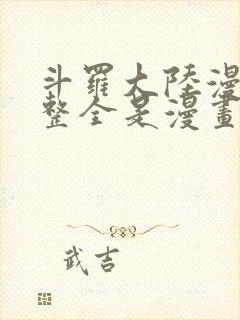 斗羅大陸漫
整全是漫畫
武吉